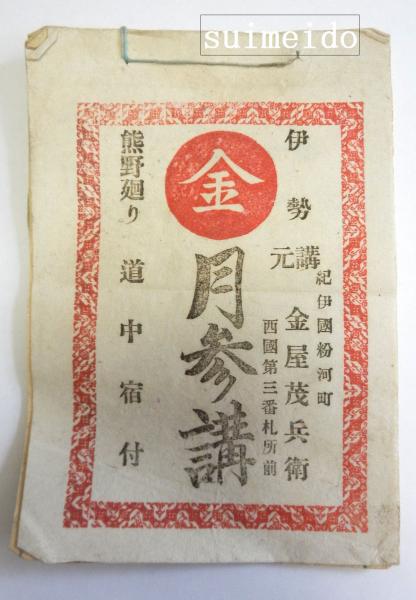 suimeido
伊勢
紀伊國粉河町
講元 金屋茂兵衛
西國第三番札所前
金
月参講
熊野廻り 道中宿付